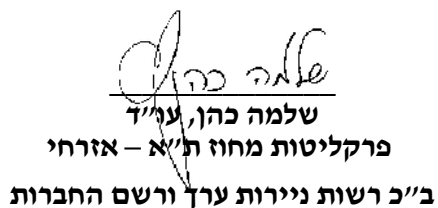 שלמה כהן
שלמה כהן, עו״ד
פרקליטות מחוז ת״א – אזרחי
ב״כ רשות ניירות ערך ורשם החברות